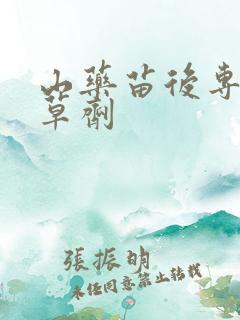 山藥苗後專
草劑
張振明
未经同意禁止转载